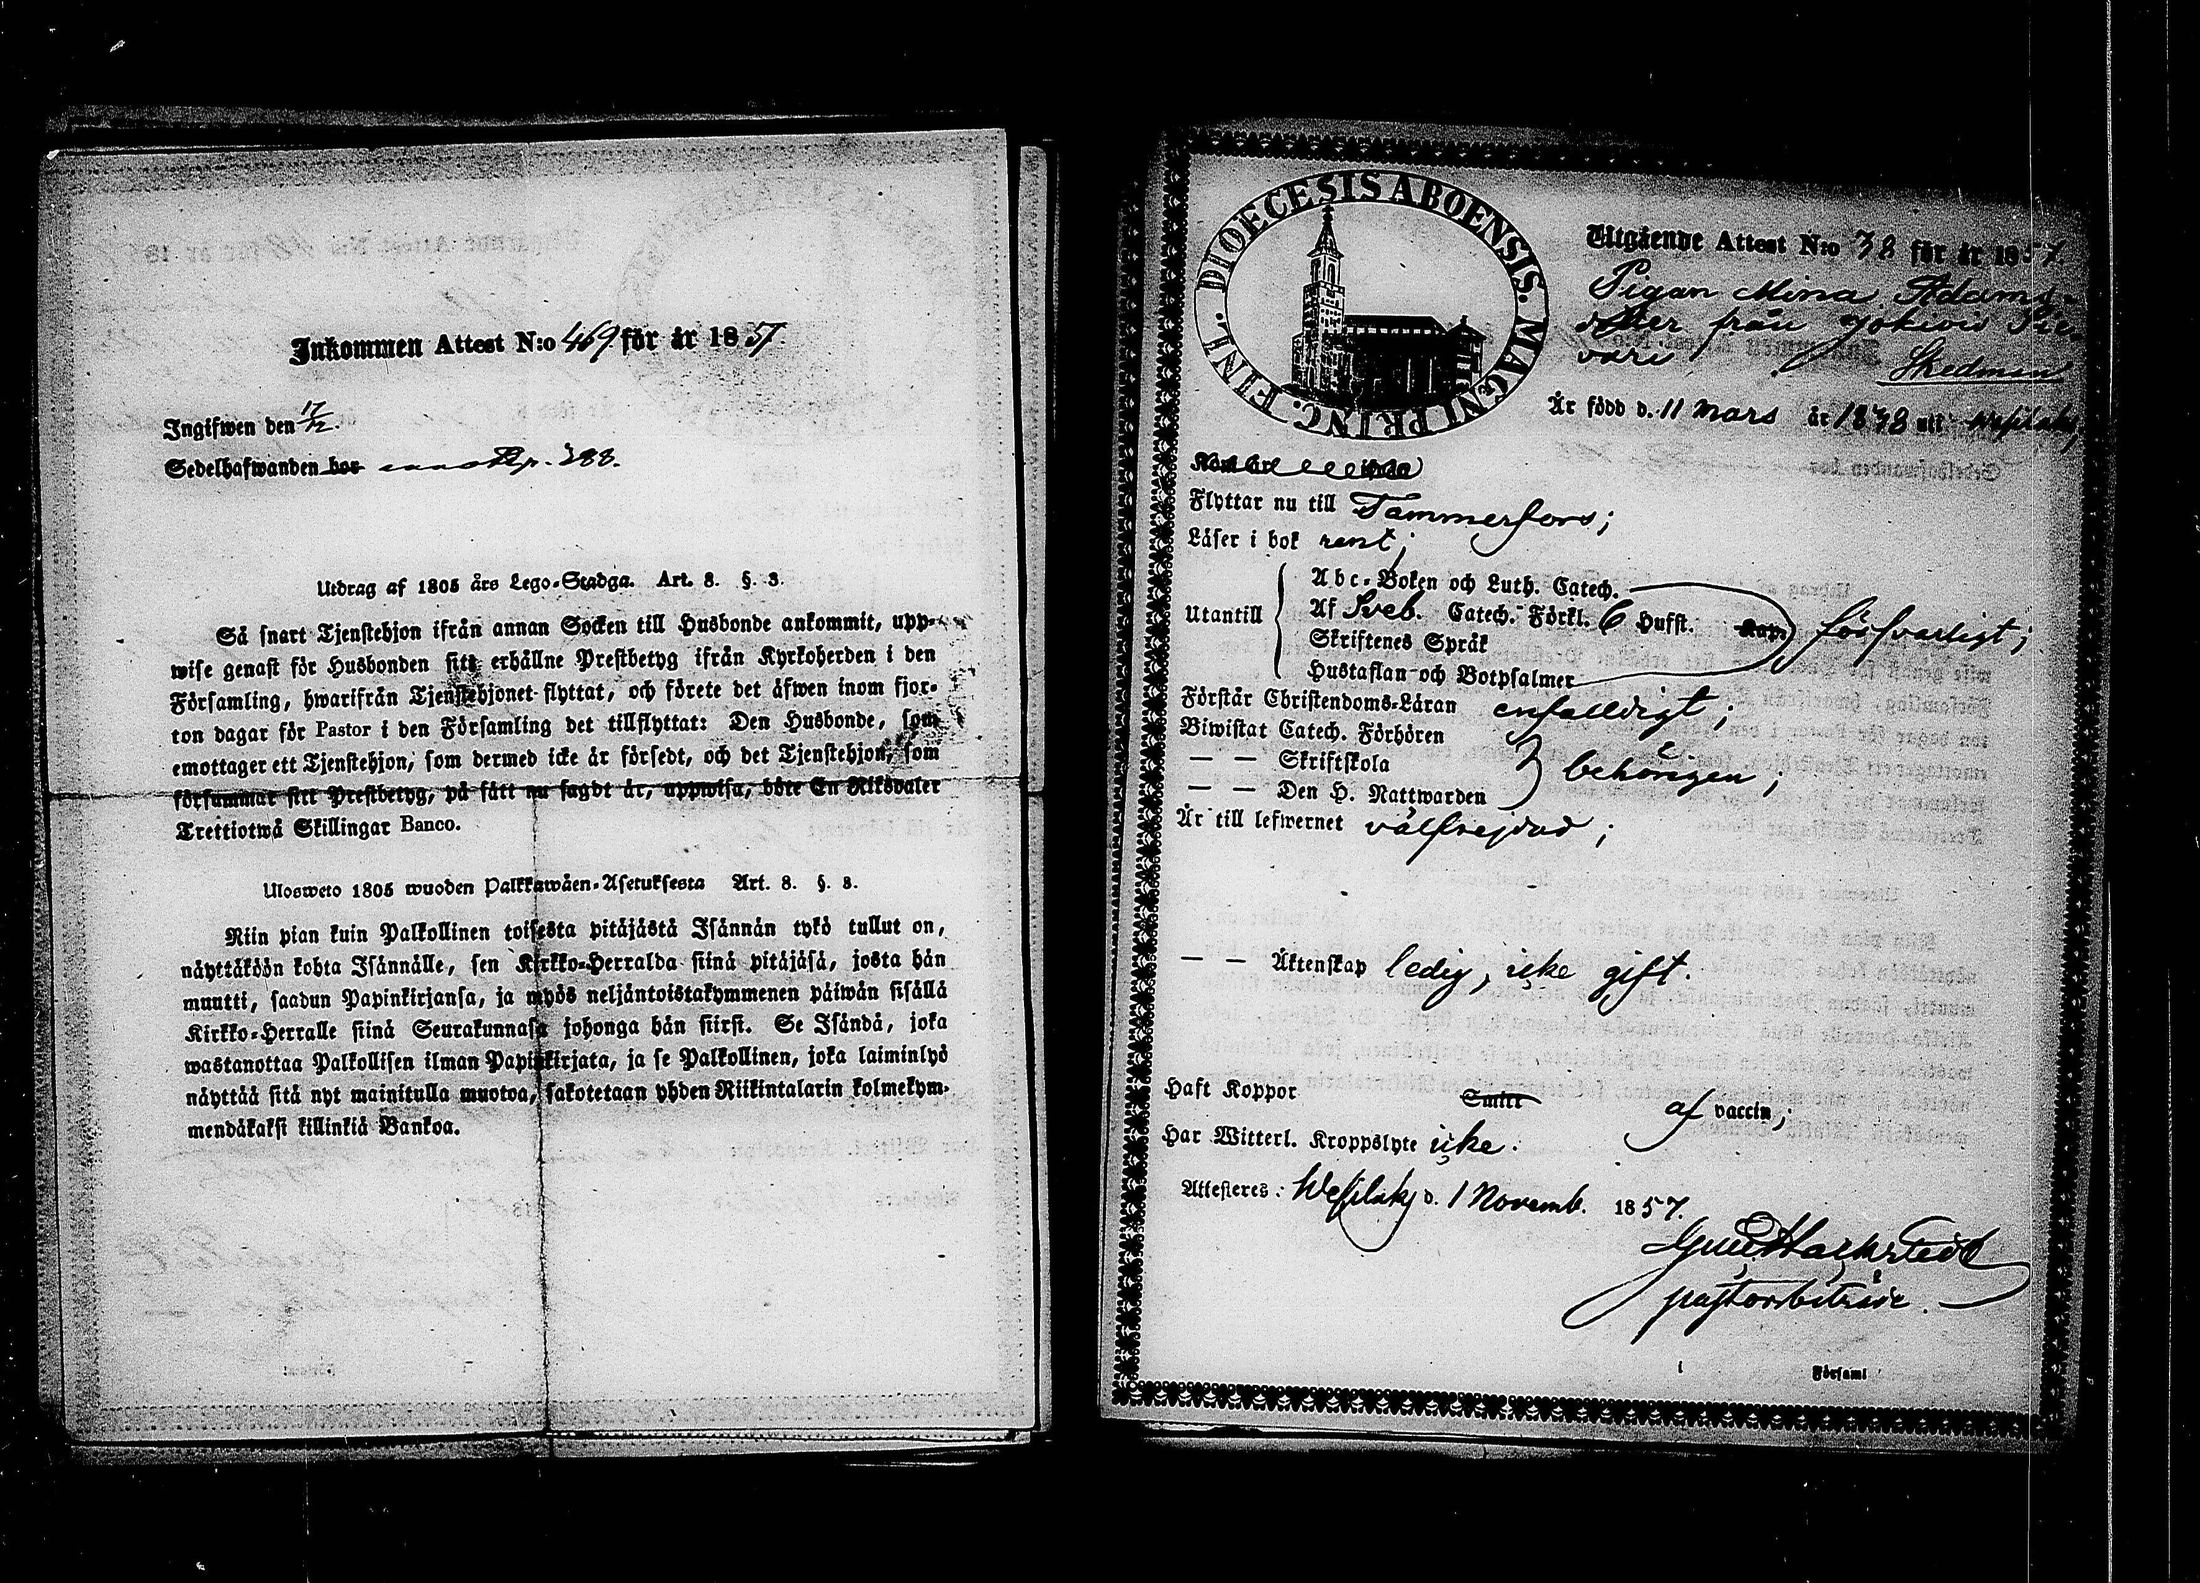 Inkommen Attest N:o 469 för år 1857.
Ingifwen den 17/12.
Sedelhafwanden hos p. 288.
Utdrag af 1805 års Lego-Stadga. Art. 8. §. 3.
Så snart Tjenstehjon ifrån annan Socken till Husbonde ankommit, upp-
wise genast för Husbonden sitt erhållne Prestbetyg ifrån Kyrkoherden i den
Församling, hwarifrån Tjenstehjonet flyttat, och förete det äfwen inom fjor-
ton dagar för Pastor i den Församling det tillflyttat: Den Husbonde, som
emottager ett Tjenstehjon, som dermed icke är försedt, och det Tjenstehjon, som
försummar sitt Prestbetyg, på sätt nu sagdt är, uppwisa, böte En Riksdaler
Trettiotwå Skillingar Banco.
Ulosweto 1805 wuoden Palkkawäen-Asetuksesta Art. 8. §. 3.
Niin pian kuin Palkollinen toisesta pitäjästä Isännän tykö tullut on,
näyttäköön kohta Isännälle, sen Kirkko-Herralda siinä pitäjäsä, josta hän
muutti, saadun Papinkirjansa, ja myös neljäntoistakymmenen päiwän sisällä
Kirkko-Herralle siinä Seurakunnasa johonga hän siirsi. Se Isändä, joka
wastanottaa Palkollisen ilman Papinkirjata, ja se Palkollinen, joka laiminlyö
näyttää sitä nyt mainitulla muotoa, sakotetaan yhden Riikintalarin kolmekym-
mendäkaksi killinkiä Bankoa.
DIOECESIS ABOENSIS. MAGNI PRINC. FINL.
Utgående Attest N:o 38 för år 1857.
Pigan Mina Adams-
dotter från Jokiois
vari Skedmen
Är född d. 11 Mars år 1838 uti Wesilaks,
Flyttar nu till Tammerfors;
Läser i bok rent;
Utantill
Abc-Boken och Luth. Catech.
Af Sveb. Catech. Förkl. 6 Hufst. Kap. försvarligt;
Skriftenes Språk
Hustaflan och Botpsalmer
Förstår Christendoms-Läran enfalldigt;
Biwistat Catech. Förhören
— — Skriftskola behörigen;
— — Den H. Nattwarden
Är till lefwernet välfrejdad;
— — Äktenskap ledig, icke gift.
Haft Koppor Smitt af vaccin;
Har Witterl. Kroppslyte icke.
Attesteres: Wesilaks d. 1 Novemb. 1857.
Hackstedt
pastorsbiträde.
i Församl